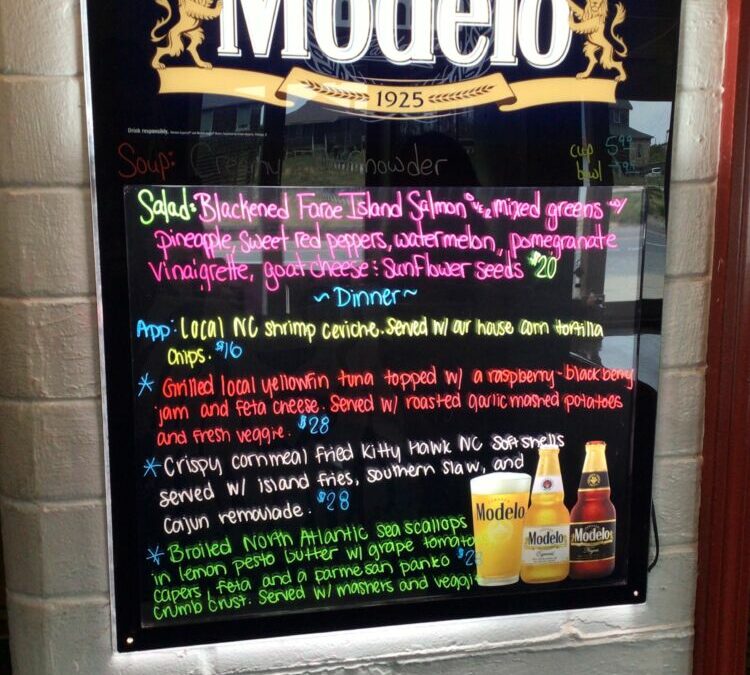 Modelo
1925
Drink responsibly.
Soup: Creamy howder cup 5.99
bowl 7.99
Salad: Blackened Faroe Island Salmon over mixed greens w/
pineapple, sweet red peppers, watermelon, pomegranate
vinaigrette, goat cheese : sunflower seeds $20
~Dinner~
App: Local NC shrimp ceviche. Served w/ our house corn tortilla
chips. $16
* Grilled local yellowfin tuna topped w/ a raspberry-blackberry
jam and feta cheese. Served w/ roasted garlic mashed potatoes
and fresh veggie. $28
* Crispy cornmeal fried Kitty Hawk NC Softshells
served w/ island fries, southern slaw, and
Cajun remoulade. $28
* Broiled North Atlantic sea scallops
in lemon pesto butter w/ grape tomato
capers, feta and a parmesan panko
crumb crust. Served w/ mashers and veggie
Modelo
Modelo
Especial
Modelo
Negra